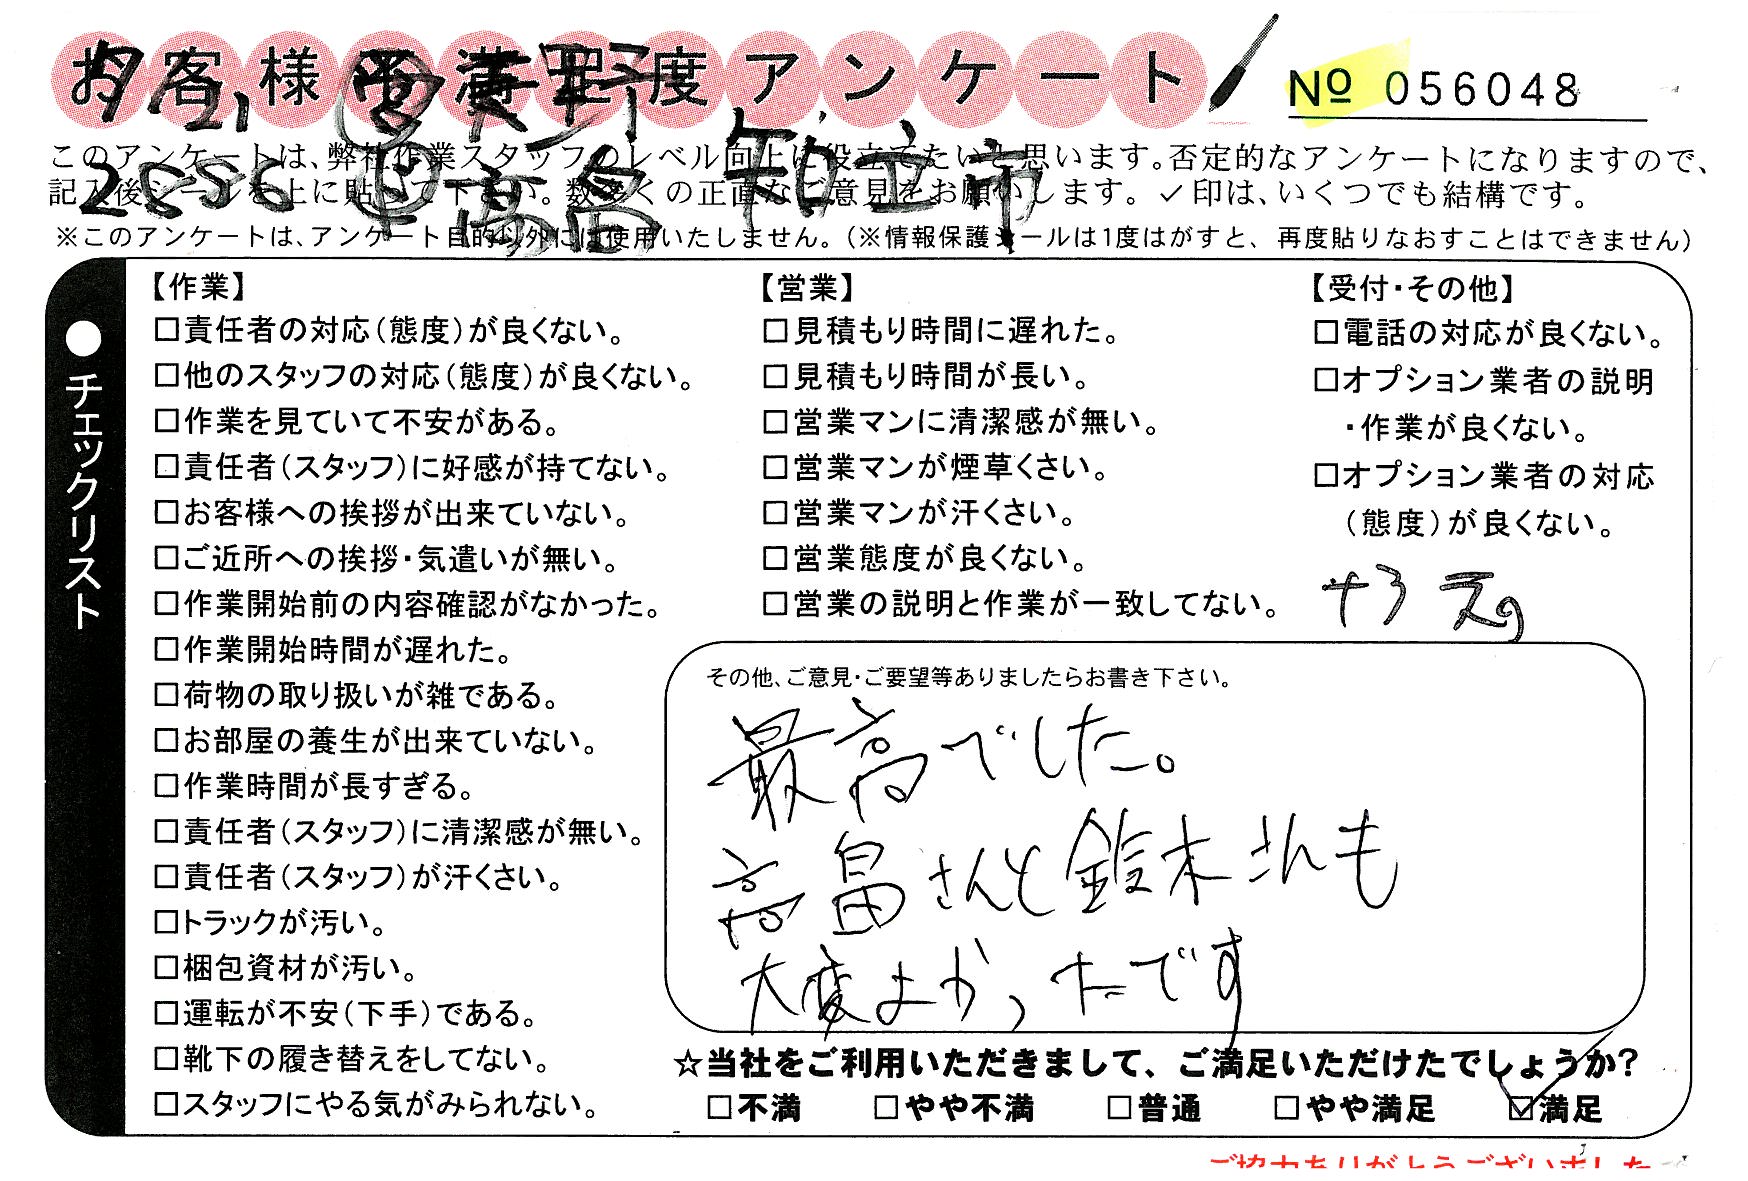 お客様不満足度アンケート
№ 056048
このアンケートは、弊社作業スタッフのレベル向上に役立てたいと思います。否定的なアンケートになりますので、
記入後シールを上に貼って下さい。数多くの正直なご意見をお願いします。✓印は、いくつでも結構です。
※このアンケートは、アンケート目的以外には使用いたしません。(※情報保護シールは1度はがすと、再度貼りなおすことはできません)
知立市
2556
高畠
●チェックリスト
【作業】
□責任者の対応(態度)が良くない。
□他のスタッフの対応(態度)が良くない。
□作業を見ていて不安がある。
□責任者(スタッフ)に好感が持てない。
□お客様への挨拶が出来ていない。
□ご近所への挨拶・気遣いが無い。
□作業開始前の内容確認がなかった。
□作業開始時間が遅れた。
□荷物の取り扱いが雑である。
□お部屋の養生が出来ていない。
□作業時間が長すぎる。
□責任者(スタッフ)に清潔感が無い。
□責任者(スタッフ)が汗くさい。
□トラックが汚い。
□梱包資材が汚い。
□運転が不安(下手)である。
□靴下の履き替えをしてない。
□スタッフにやる気がみられない。
【営業】
□見積もり時間に遅れた。
□見積もり時間が長い。
□営業マンに清潔感が無い。
□営業マンが煙草くさい。
□営業マンが汗くさい。
□営業態度が良くない。
□営業の説明と作業が一致してない。
【受付・その他】
□電話の対応が良くない。
□オプション業者の説明
・作業が良くない。
□オプション業者の対応
(態度)が良くない。
その他、ご意見・ご要望等ありましたらお書き下さい。
最高でした。
高畠さんと鈴木さんも
大変よかったです
☆当社をご利用いただきまして、ご満足いただけたでしょうか?
□不満 □やや不満 □普通 □やや満足 ☑満足
ご協力ありがとうございました